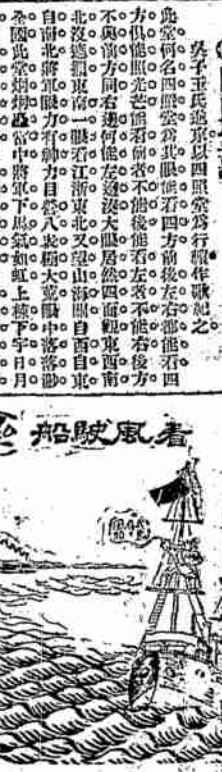 吳子玉氏進京以四照堂爲行轅作歌紀之
此堂何名四照堂爲此眼能看四方前後左右都能看四
方俱能照光芒能看前者不能後能看左者不能右後方
不與前方同右邊何能左邊湊大眼居然四面觀東西南
北沒遮攔東南一眼看江浙東北又望山海關自西自東
自南北將軍眼力有神力目營八表極大荒眼中落落渺
全國此堂炯炯當中將軍下馬氣如虹上棟下宇日月
看風駛船